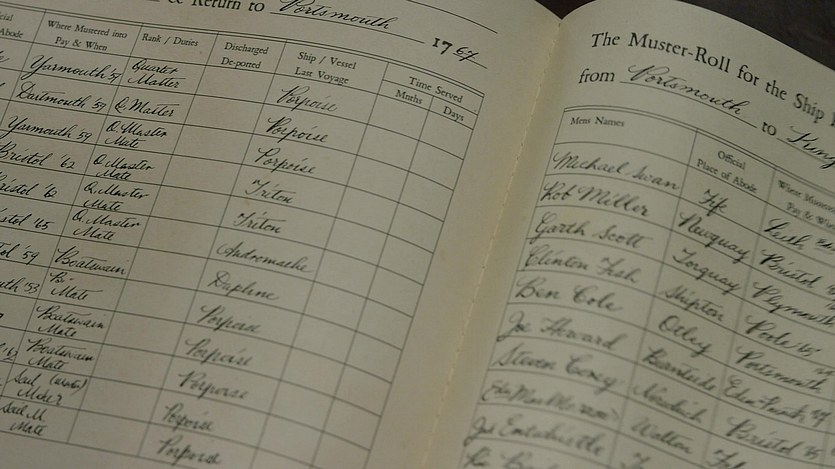 & Return to Portsmouth
1767
Where Mustered into Pay & When
Rank / Duties
Discharged De-ported
Ship / Vessel Last Voyage
Time Served
Mnths
Days
Yarmouth '57 Quarter Master Porpoise
Dartmouth '59 Q. Master Porpoise
Yarmouth '59 Q. Master Mate Porpoise
Bristol '62 Q. Master Mate Triton
Q. Master Mate Triton
'65 Q. Master Mate Andromache
'59 Boatswain Daphne
'53 Bo- Mate Porpoise
Boatswain Mate Porpoise
Boatswain Mate Porpoise
Sail Maker Porpoise
Sail M. Mate Porpoise
The Muster-Roll for the Ship
from Portsmouth to
Mens Names
Official Place of Abode
Where Mustered Pay &
Michael Swan Fife Leith
Rob Miller Newquay Bristol
Garth Scott Torquay Plymouth
Clinton Fish Shipton Poole '65
Ben Cole Otley Portsmouth
Joe Howard
Steven Bristol '65
Walton
Joe Entwhistle